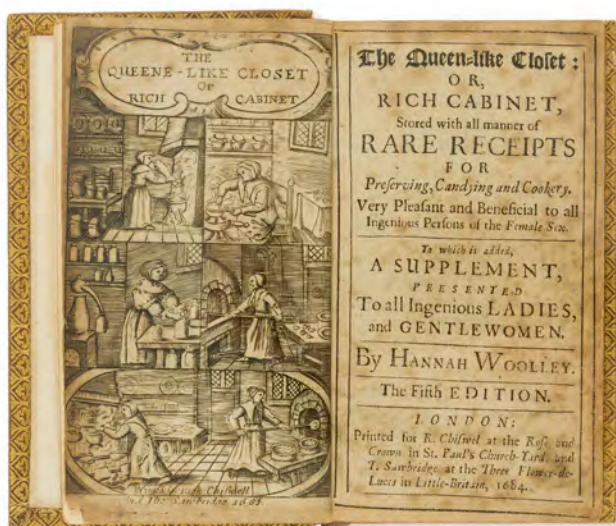 THE
QUEENE-LIKE CLOSET
OR
RICH CABINET
The Queen-like Cloſet:
OR,
RICH CABINET,
Stored with all manner of
RARE RECEIPTS
FOR
Preſerving, Candying and Cookery.
Very Pleaſant and Beneficial to all
Ingenious Perſons of the Female Sex.
To which is added,
A SUPPLEMENT,
PRESENTED
To all Ingenious LADIES,
and GENTLEWOMEN.
By HANNAH WOOLLEY.
The Fifth EDITION.
LONDON:
Printed for R. Chiſwel at the Roſe and
Crown in St. Paul's Church-Yard, and
T. Sawbridge at the Three Flower-de-
Luces in Little-Britain, 1684.